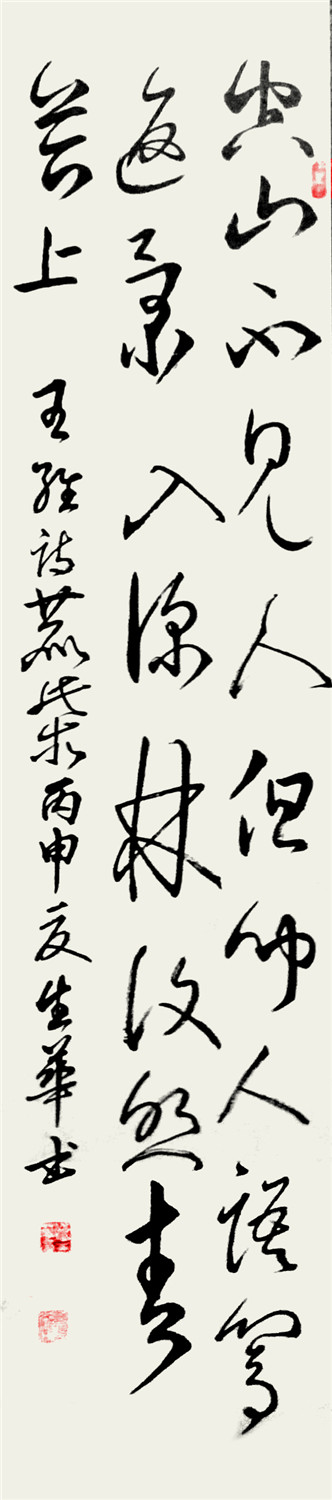 空山不見人但聞人語響
返景入深林復照青
苔上 王維詩鹿柴丙申夏生華書